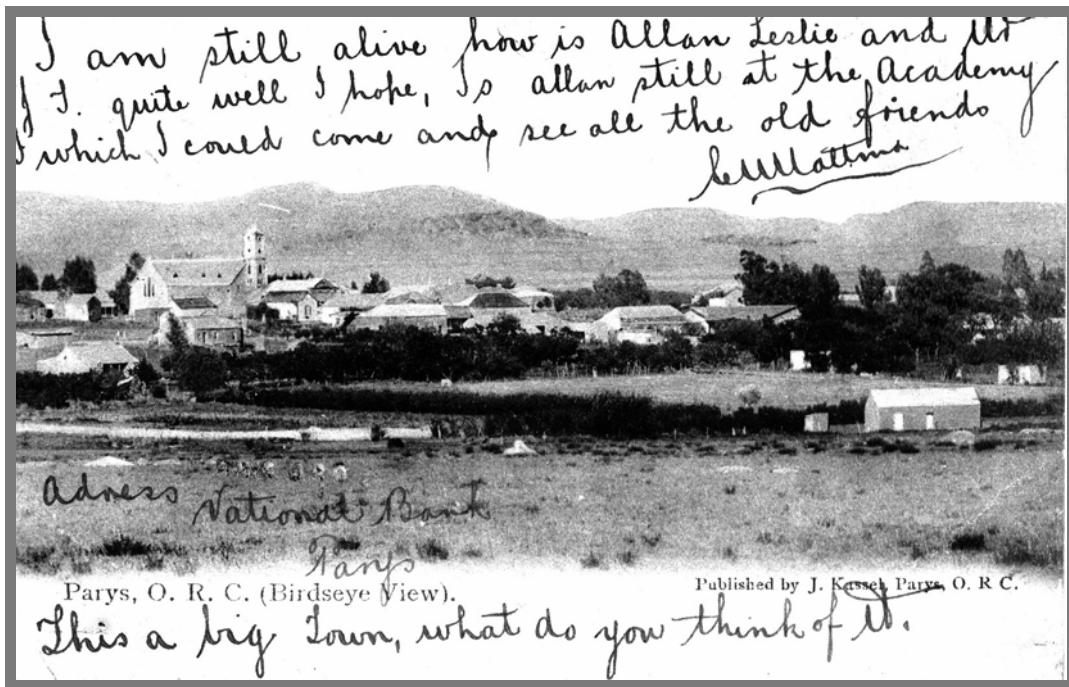 I am still alive how is Allan Leslie and Mr
J T. quite well I hope, Is allan still at the Academy
I which I could come and see all the old friends
Adress
National Bank
Parys
Parys, O. R. C. (Birdseye View).
Published by J. Kassel, Parys, O. R C.
This a big Town, what do you think of it.